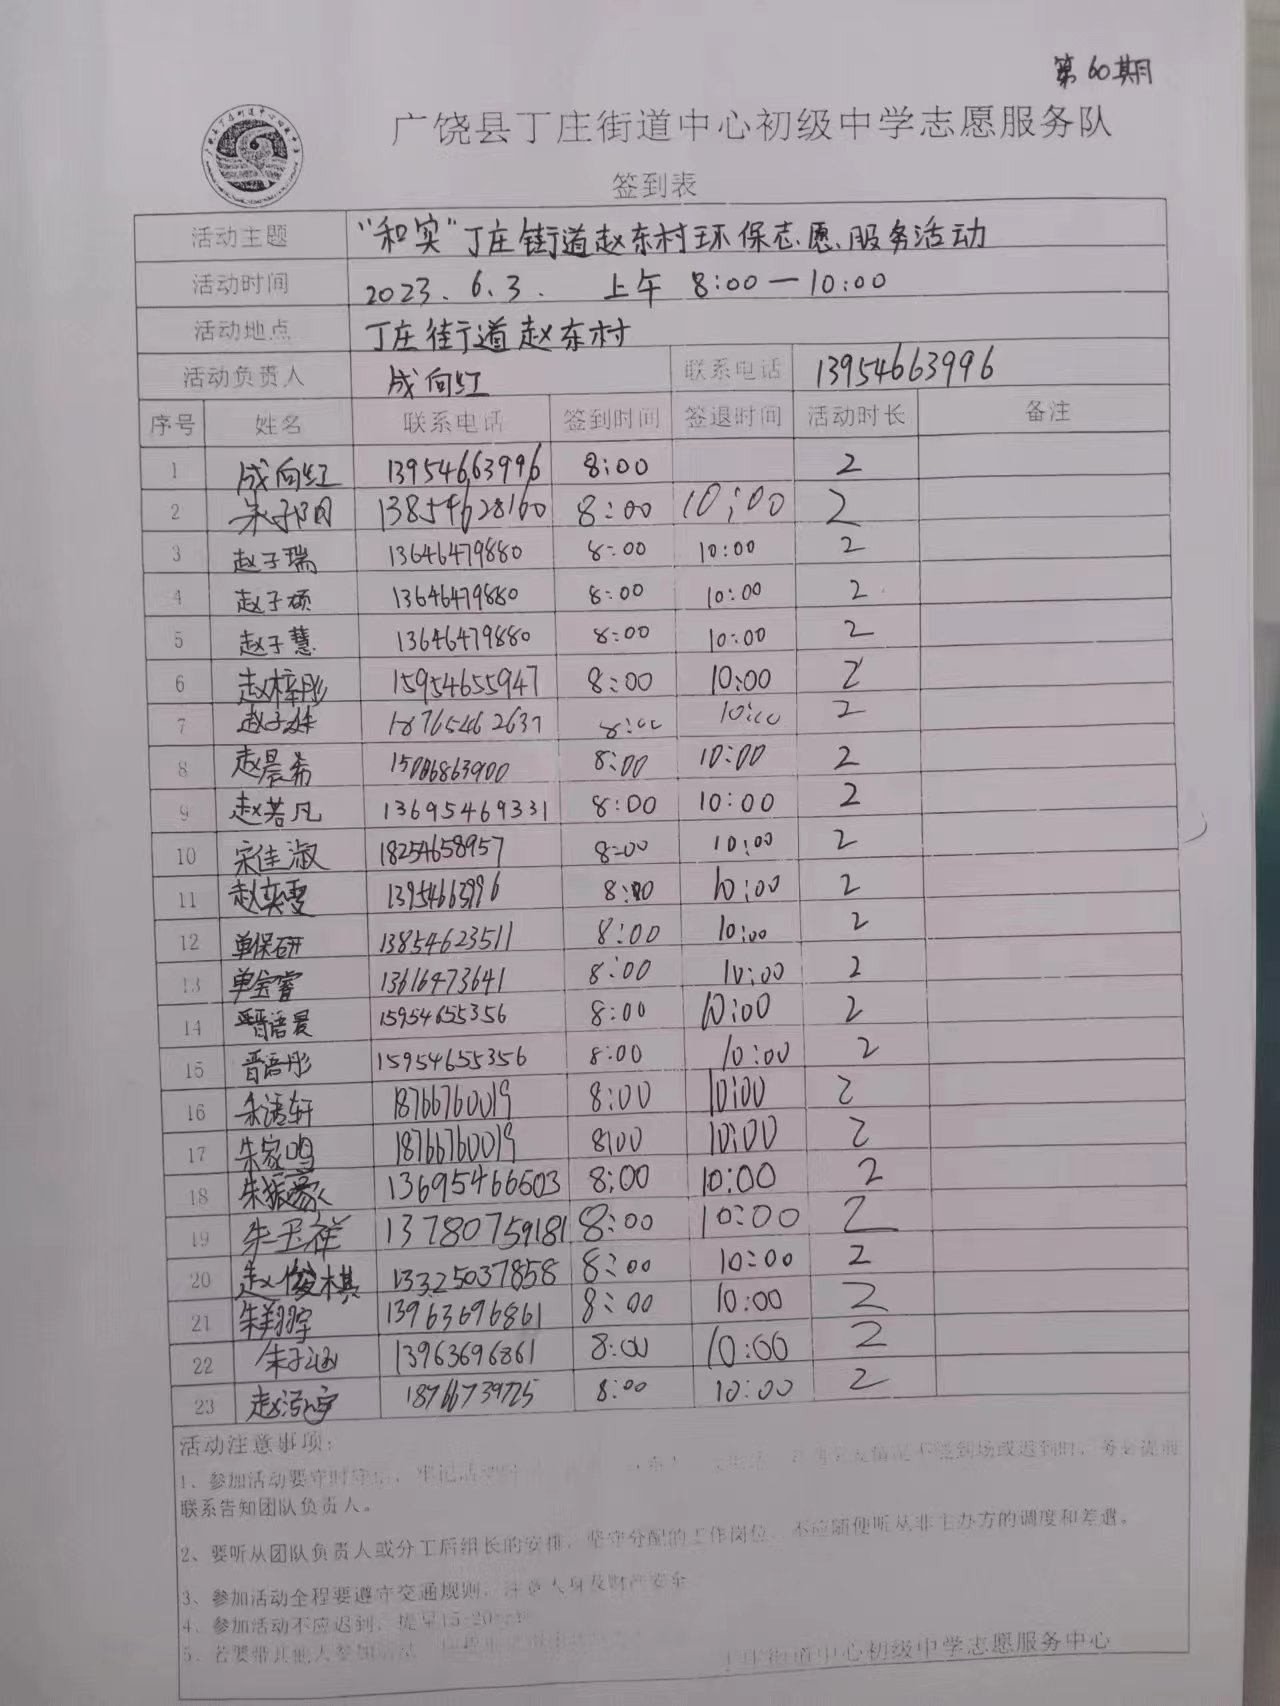 第60期
广饶县丁庄街道中心初级中学志愿服务队
签到表
活动主题 "和实"丁庄街道赵东村环保志愿服务活动
活动时间 2023.6.3. 上午 8:00—10:00
活动地点 丁庄街道赵东村
活动负责人 成向红 联系电话 13954663996
序号 姓名 联系电话 签到时间 签退时间 活动时长 备注
1 成向红 13954663996 8:00 2
2 13854628160 8:00 10:00 2
3 赵子瑞 13646479880 8:00 10:00 2
4 赵子硕 13646479880 8:00 10:00 2
5 赵子慧 13646479880 8:00 10:00 2
6 赵梓彤 15954655947 8:00 10:00 2
7 赵子姝 18765462637 8:00 10:00 2
8 赵晨希 15006863900 8:00 10:00 2
9 赵若凡 13695469331 8:00 10:00 2
10 宋佳淑 18254658957 8:00 10:00 2
11 赵奕雯 13954663996 8:00 10:00 2
12 单保研 13854623511 8:00 10:00 2
13 单宝睿 13616473641 8:00 10:00 2
14 晋语晨 15954655356 8:00 10:00 2
15 晋语彤 15954655356 8:00 10:00 2
16 18766760019 8:00 10:00 2
17 朱家鸣 18766760019 8:00 10:00 2
18 朱振豪 13695466503 8:00 10:00 2
19 朱玉祥 13780759181 8:00 10:00 2
20 赵俊棋 13325037858 8:00 10:00 2
21 朱翔宇 13963696861 8:00 10:00 2
22 朱子涵 13963696861 8:00 10:00 2
23 18766739725 8:00 10:00 2
活动注意事项:
1、参加活动要守时守信, 情况不能到场或迟到时,务必提前
联系告知团队负责人。
2、要听从团队负责人或分工后组长的安排,坚守分配的工作岗位,不应随便听从非主办方的调度和差遣。
3、参加活动全程要遵守交通规则,注意人身及财产安全
4、参加活动不应迟到,提早15-20
5、若要带其他人参加活动
丁庄街道中心初级中学志愿服务中心